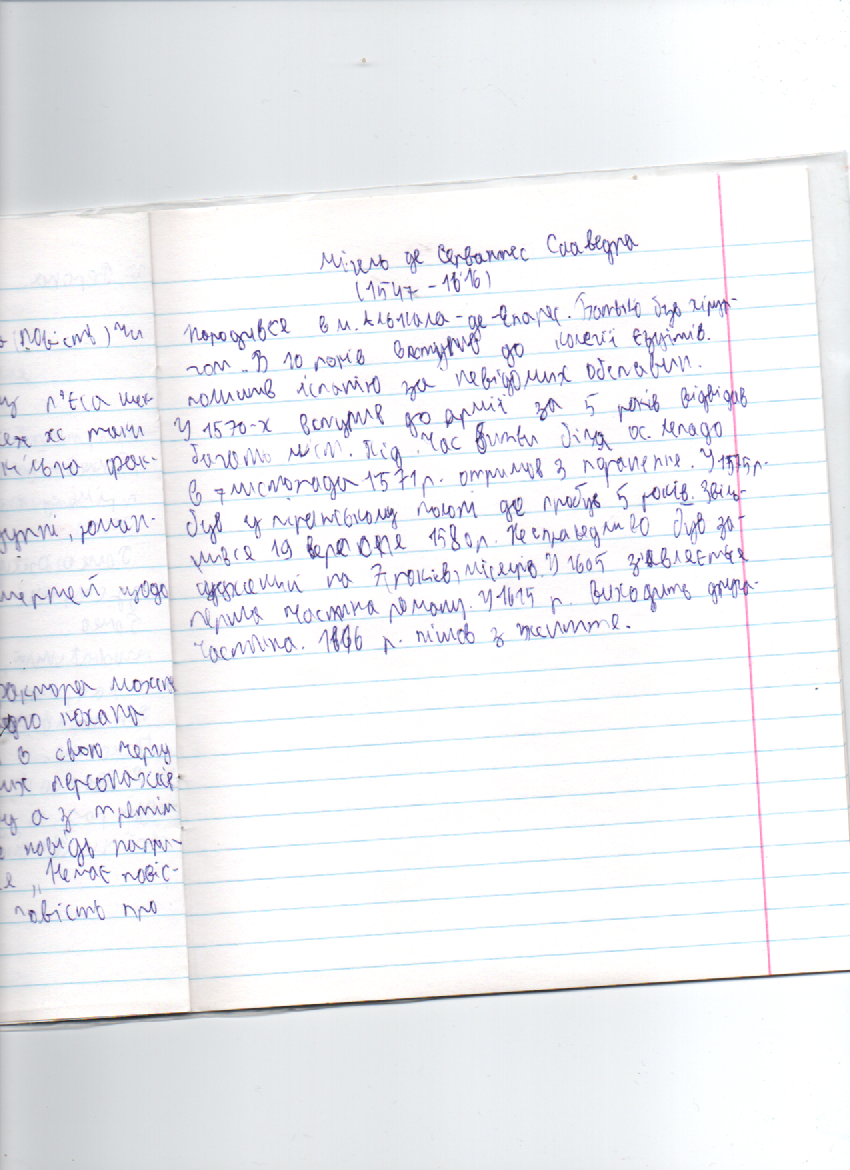 а (повість) чи
му п'єса шек-
еж хс таки
кілька фак-
групі, роман-
мертей щодо
рактора може
його кохана
а в свою чергу
их персонажів
му а з третім
є повідь напри-
я „Немає повіс-
повість про
Мігель де Сервантес Сааведра
(1547 - 1616)
Народився в м. Алькала-де-Енарес. Батько був хірур-
гом. В 10 років вступив до колегії Єзуїтів.
полишив Іспанію за невідомих обставин.
У 1570-х вступив до армії за 5 років відвідав
багато міст. Під час битви біля ос. Лепадо
в 7 листопада 1571 р. отримав 3 поранення. У 1575 р.
був у піратському полоні де пробув 5 років. Звіль-
нився 19 вересня 1580 р. Несправедливо був за-
суджений на 7 років, місяців У 1605 з'являється
перша частина роману. У 1615 р. виходить друга
частина. 1616 р. пішов з життя.